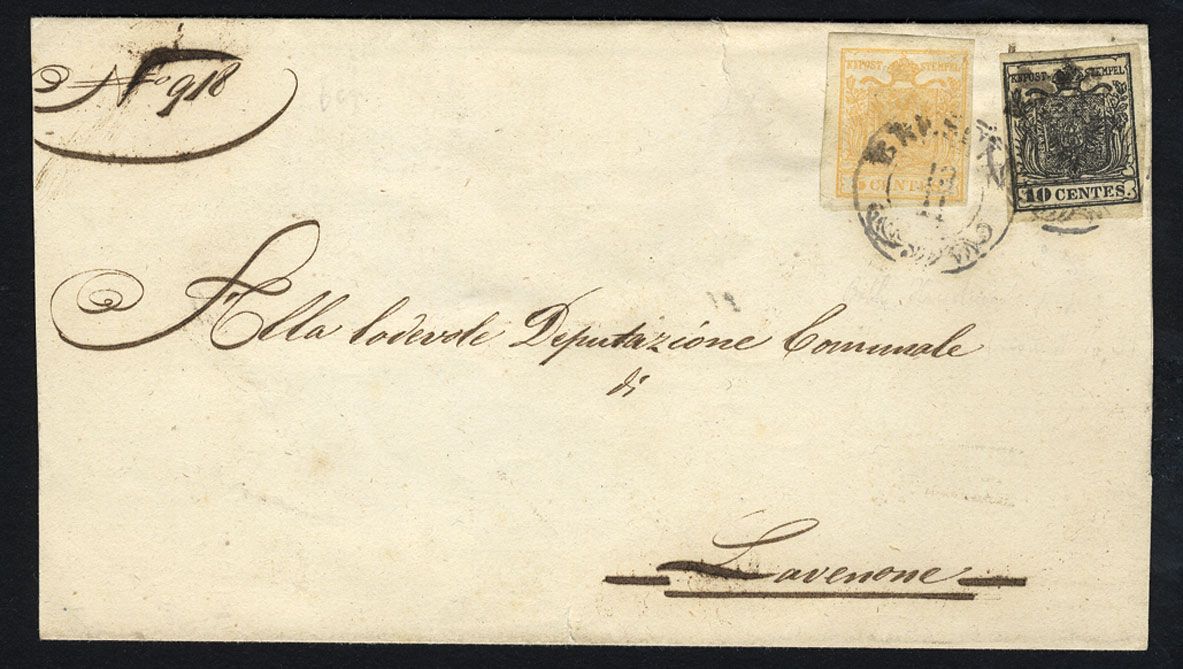 No 918
KKPOST-STEMPEL
5 CENTES
KKPOST-STEMPEL
10 CENTES.
13
11
Alla lodevole Deputazione Comunale
di
Lavenone